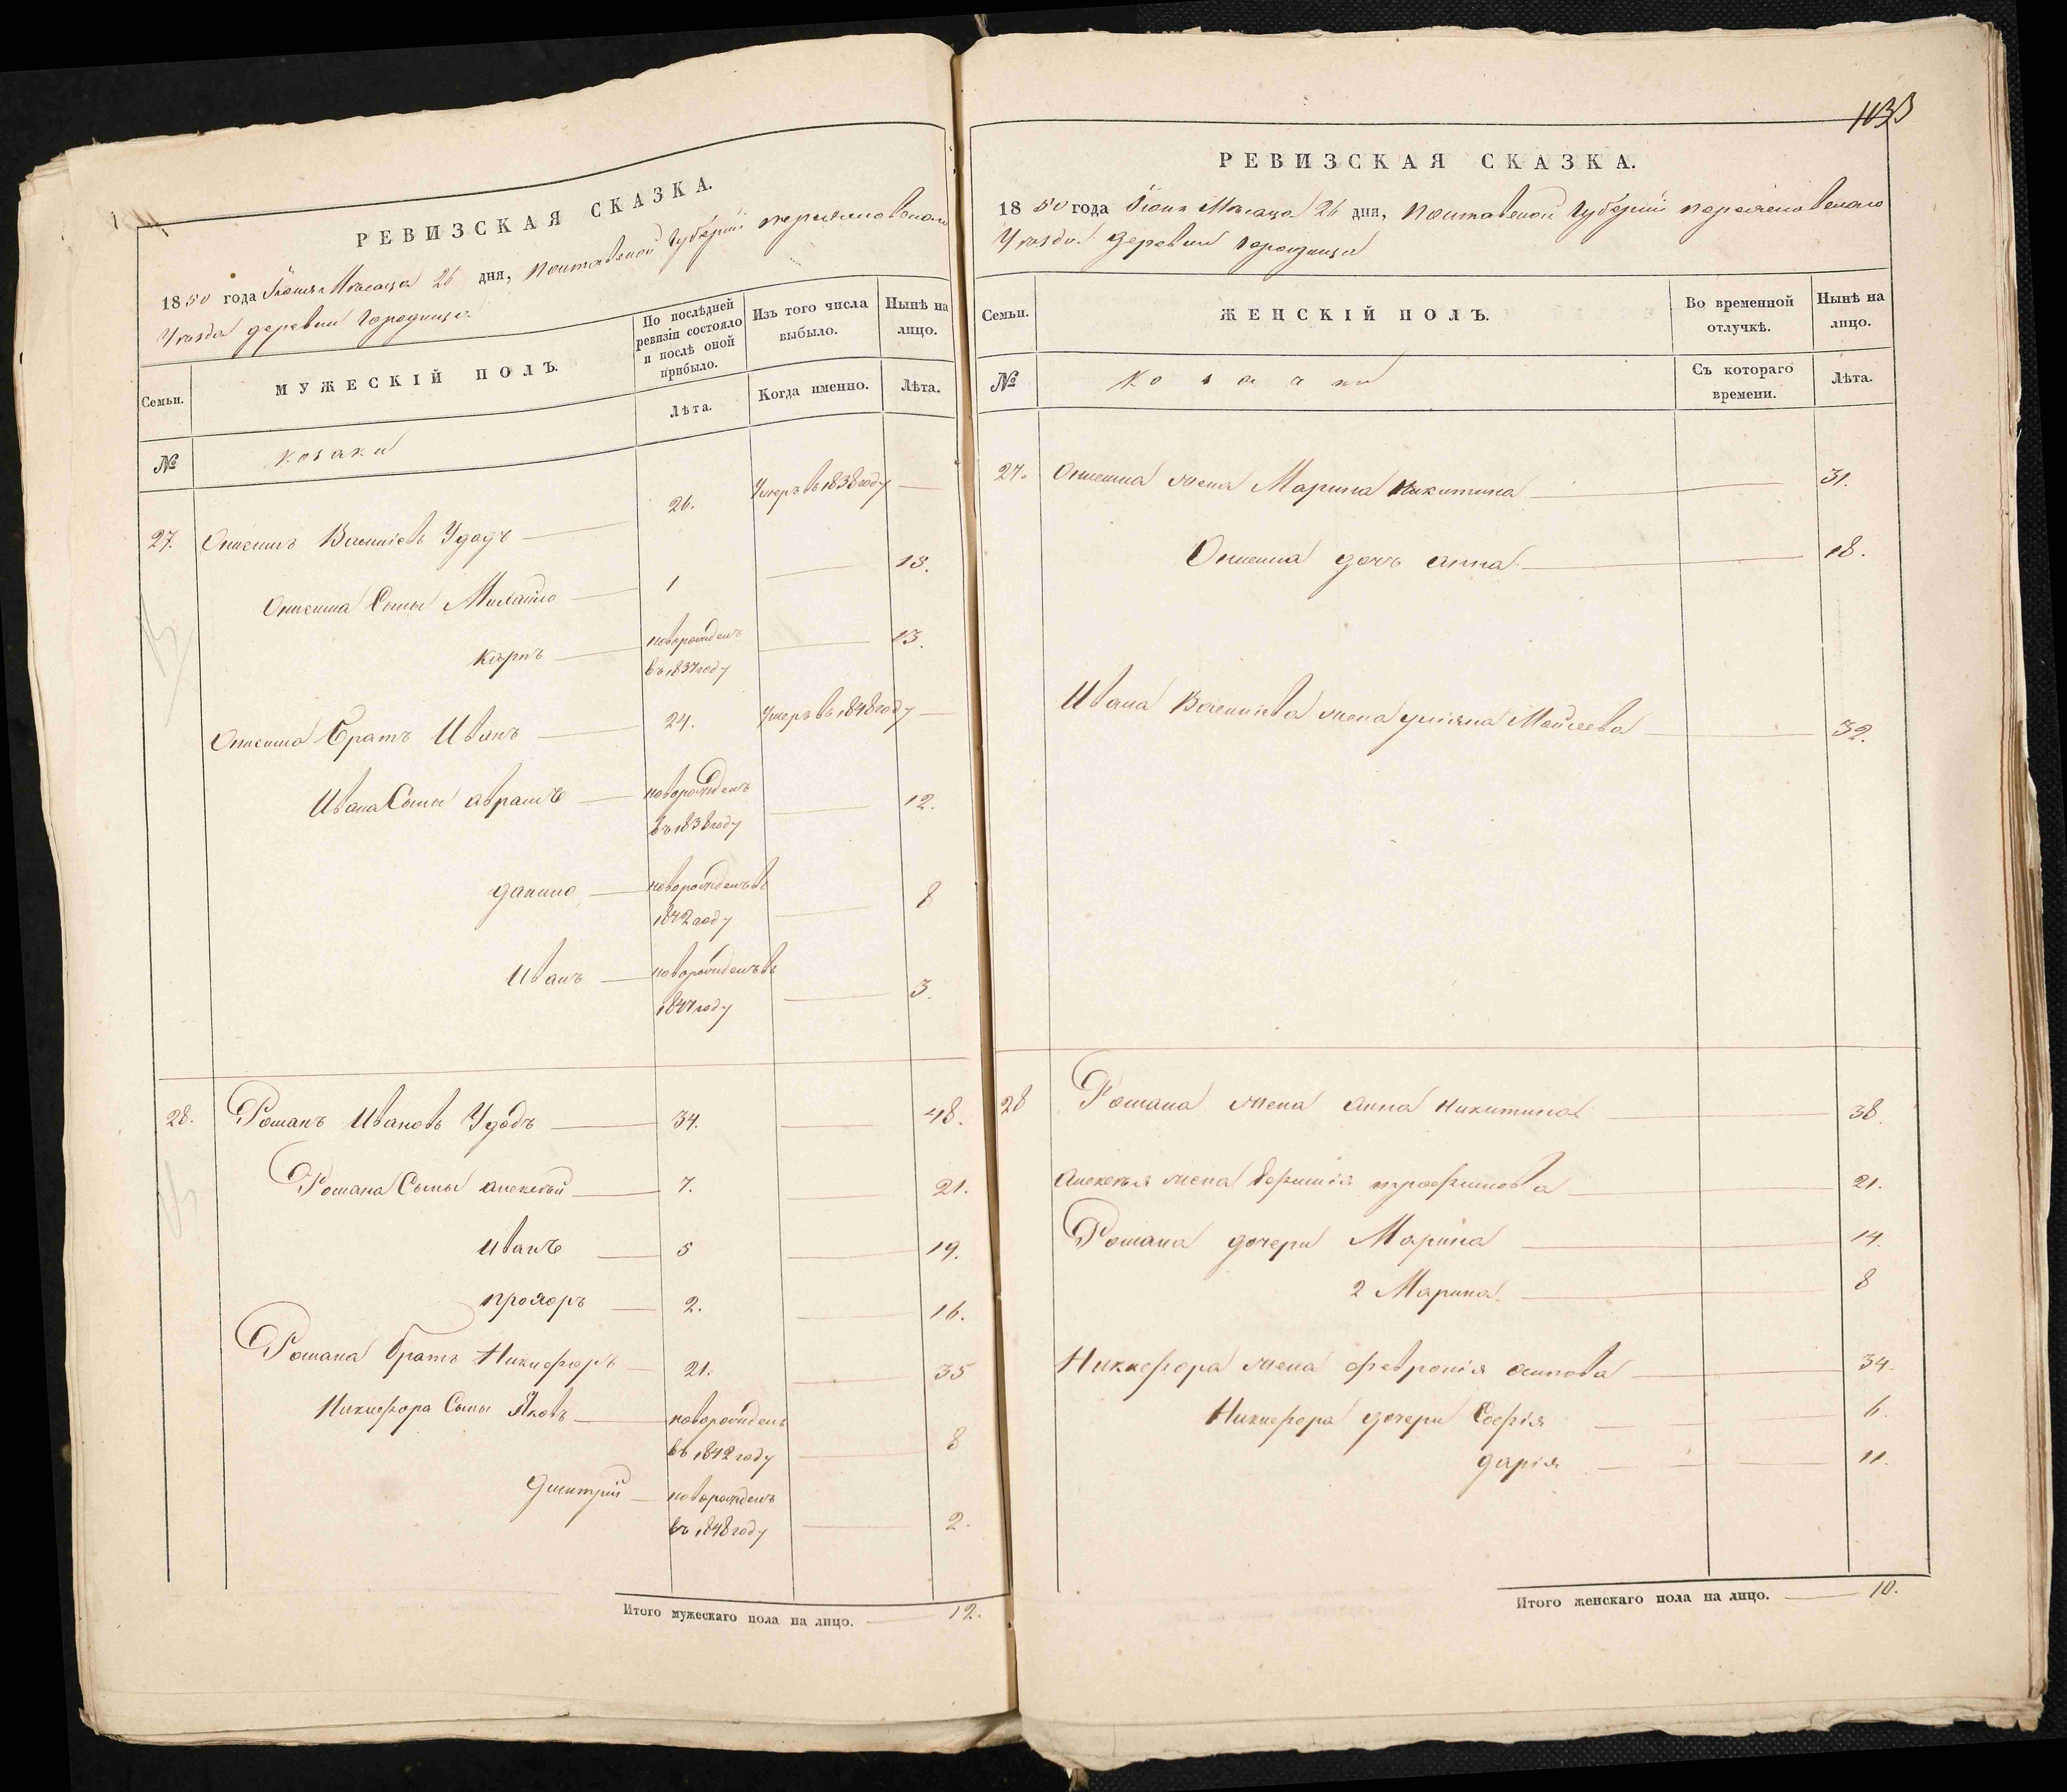 РЕВИЗСКАЯ СКАЗКА.
1850 года Іюня Месяца 26 дня, Полтавской Губерніи переясловского
Уезда деревни Городища
Семьи.
МУЖЕСКІЙ ПОЛЪ.
По послѣдней ревизіи состояло и послѣ оной прибыло.
Изъ того числа выбыло.
Нынѣ на лицо.
№
козаки
Лѣта.
Когда именно.
Лѣта.
27. Онисимъ Васильевъ Удодъ 26. Умеръ въ 1838 году
Онисима Сыны Михайло 1 13.
карпъ новорожденъ въ 1837 году 13.
Онисима братъ Иванъ 24. Умеръ въ 1848 году
Ивана Сыны аврамъ новорожденъ въ 1838 году 12.
данило новорожденъ въ 1842 году 8
Иванъ новорожденъ въ 1847 году 3.
28. Романъ Ивановъ Удодъ 34. 48.
Романа Сыны алексей 7. 21.
иванъ 5 19.
прохоръ 2. 16.
Романа братъ Никифоръ 21. 35
Никифора Сыны Яковъ новорожденъ въ 1842 году 8
дмитрій новорожденъ въ 1848 году 2.
Итого мужескаго пола на лицо. 12.
1033
РЕВИЗСКАЯ СКАЗКА.
1850 года Іюня Месяца 26 дня, Полтавской Губерніи переясловского
Уезда деревни городища
Семьи.
ЖЕНСКІЙ ПОЛЪ.
Во временной отлучкѣ.
Нынѣ на лицо.
№
Козачки
Съ котораго времени.
Лѣта.
27. Онисима жена Марина Никитина 31.
Онисима дочь анна 18.
Ивана Васильева жена уліяна Мойсеева 32.
28 Романа жена анна никитина 38.
Алексея жена Ефимія трофимова 21.
Романа дочери Марина 14.
2 Марина 8
Никифора жена февронія осипова 34.
Никифора дочери Софія 6.
дарія 11.
Итого женскаго пола на лицо. 10.